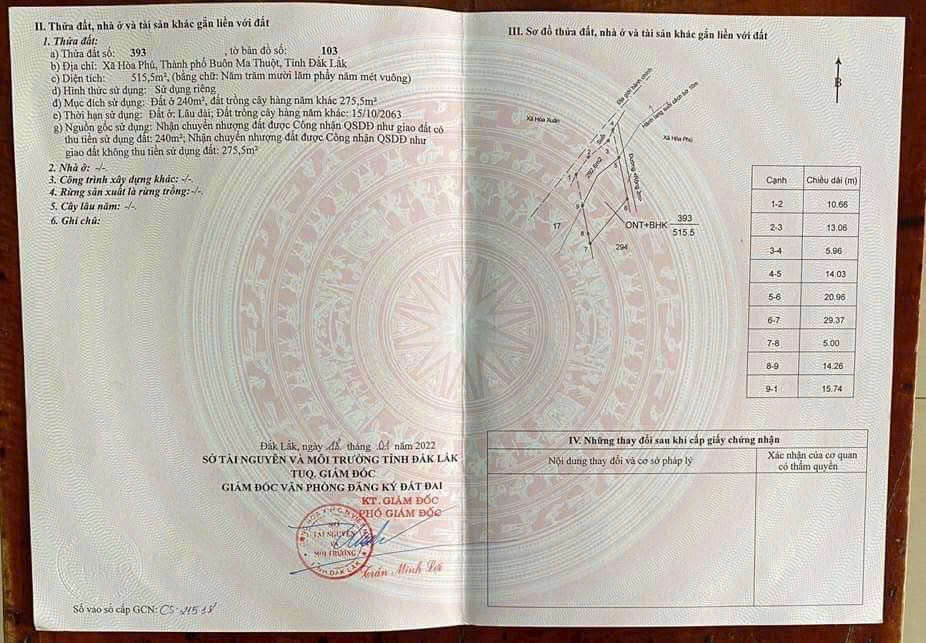 II. Thửa đất, nhà ở và tài sản khác gắn liền với đất
1. Thửa đất:
a) Thửa đất số: 393 , tờ bản đồ số: 103
b) Địa chỉ: Xã Hòa Phú, Thành phố Buôn Ma Thuột, Tỉnh Đắk Lắk
c) Diện tích: 515,5m², (bằng chữ: Năm trăm mười lăm phẩy năm mét vuông)
d) Hình thức sử dụng: Sử dụng riêng
đ) Mục đích sử dụng: Đất ở 240m², đất trồng cây hàng năm khác 275,5m²
e) Thời hạn sử dụng: Đất ở: Lâu dài; Đất trồng cây hàng năm khác: 15/10/2063
g) Nguồn gốc sử dụng: Nhận chuyển nhượng đất được Công nhận QSDĐ như giao đất có
thu tiền sử dụng đất: 240m²; Nhận chuyển nhượng đất được Công nhận QSDĐ như
giao đất không thu tiền sử dụng đất: 275,5m²
2. Nhà ở: -/-.
3. Công trình xây dựng khác: -/-.
4. Rừng sản xuất là rừng trồng:-/-.
5. Cây lâu năm: -/-.
6. Ghi chú:
Đắk Lắk, ngày 18 tháng 01 năm 2022
SỞ TÀI NGUYÊN VÀ MÔI TRƯỜNG TỈNH ĐẮK LẮK
TUQ. GIÁM ĐỐC
GIÁM ĐỐC VĂN PHÒNG ĐĂNG KÝ ĐẤT ĐAI
KT. GIÁM ĐỐC
PHÓ GIÁM ĐỐC
SỞ
TÀI NGUYÊN
VÀ
MÔI TRƯỜNG
TỈNH ĐẮK LẮK
Trần Minh Lợi
Số vào sổ cấp GCN: CS
III. Sơ đồ thửa đất, nhà ở và tài sản khác gắn liền với đất
B
Địa giới hành chính
Hành lang suối cách bờ 10m
Xã Hòa Xuân
Xã Hòa Phú
Suối
Đường
1
2
3
4
5
6
7
8
9
17
294
ONT+BHK 393
515.5
Cạnh Chiều dài (m)
1-2 10.66
2-3 13.06
3-4 5.96
4-5 14.03
5-6 20.96
6-7 29.37
7-8 5.00
8-9 14.26
9-1 15.74
IV. Những thay đổi sau khi cấp giấy chứng nhận
Nội dung thay đổi và cơ sở pháp lý
Xác nhận của cơ quan
có thẩm quyền